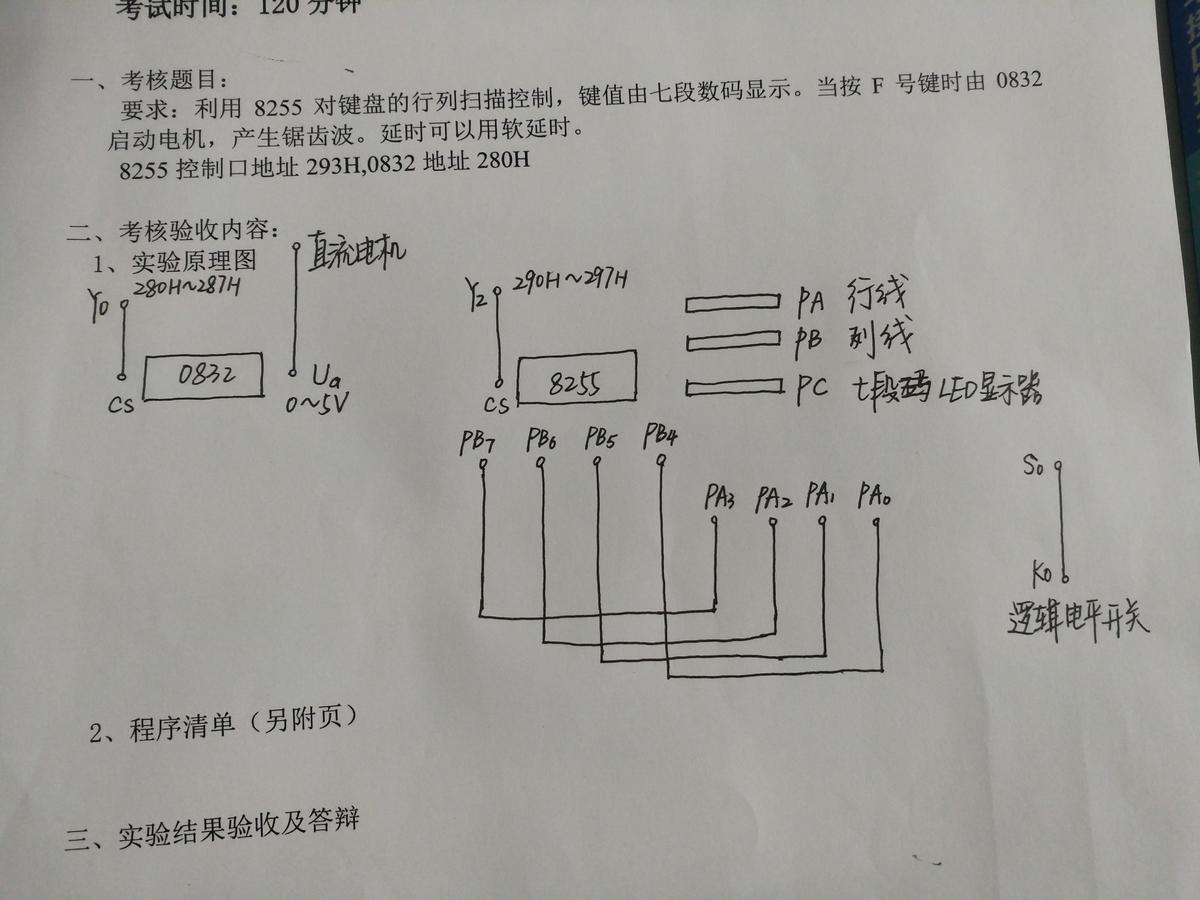 考试时间：120 分钟
一、考核题目：
要求：利用 8255 对键盘的行列扫描控制，键值由七段数码显示。当按 F 号键时由 0832
启动电机，产生锯齿波。延时可以用软延时。
8255 控制口地址 293H,0832 地址 280H
二、考核验收内容：
1、实验原理图
直流电机
Y0 280H～287H
Y2 290H～297H
PA 行线
PB 列线
0832
8255
PC 七段码LED显示器
CS
Ua
0～5V
CS
PB7 PB6 PB5 PB4
PA3 PA2 PA1 PA0
S0
K0
逻辑电平开关
2、程序清单（另附页）
三、实验结果验收及答辩